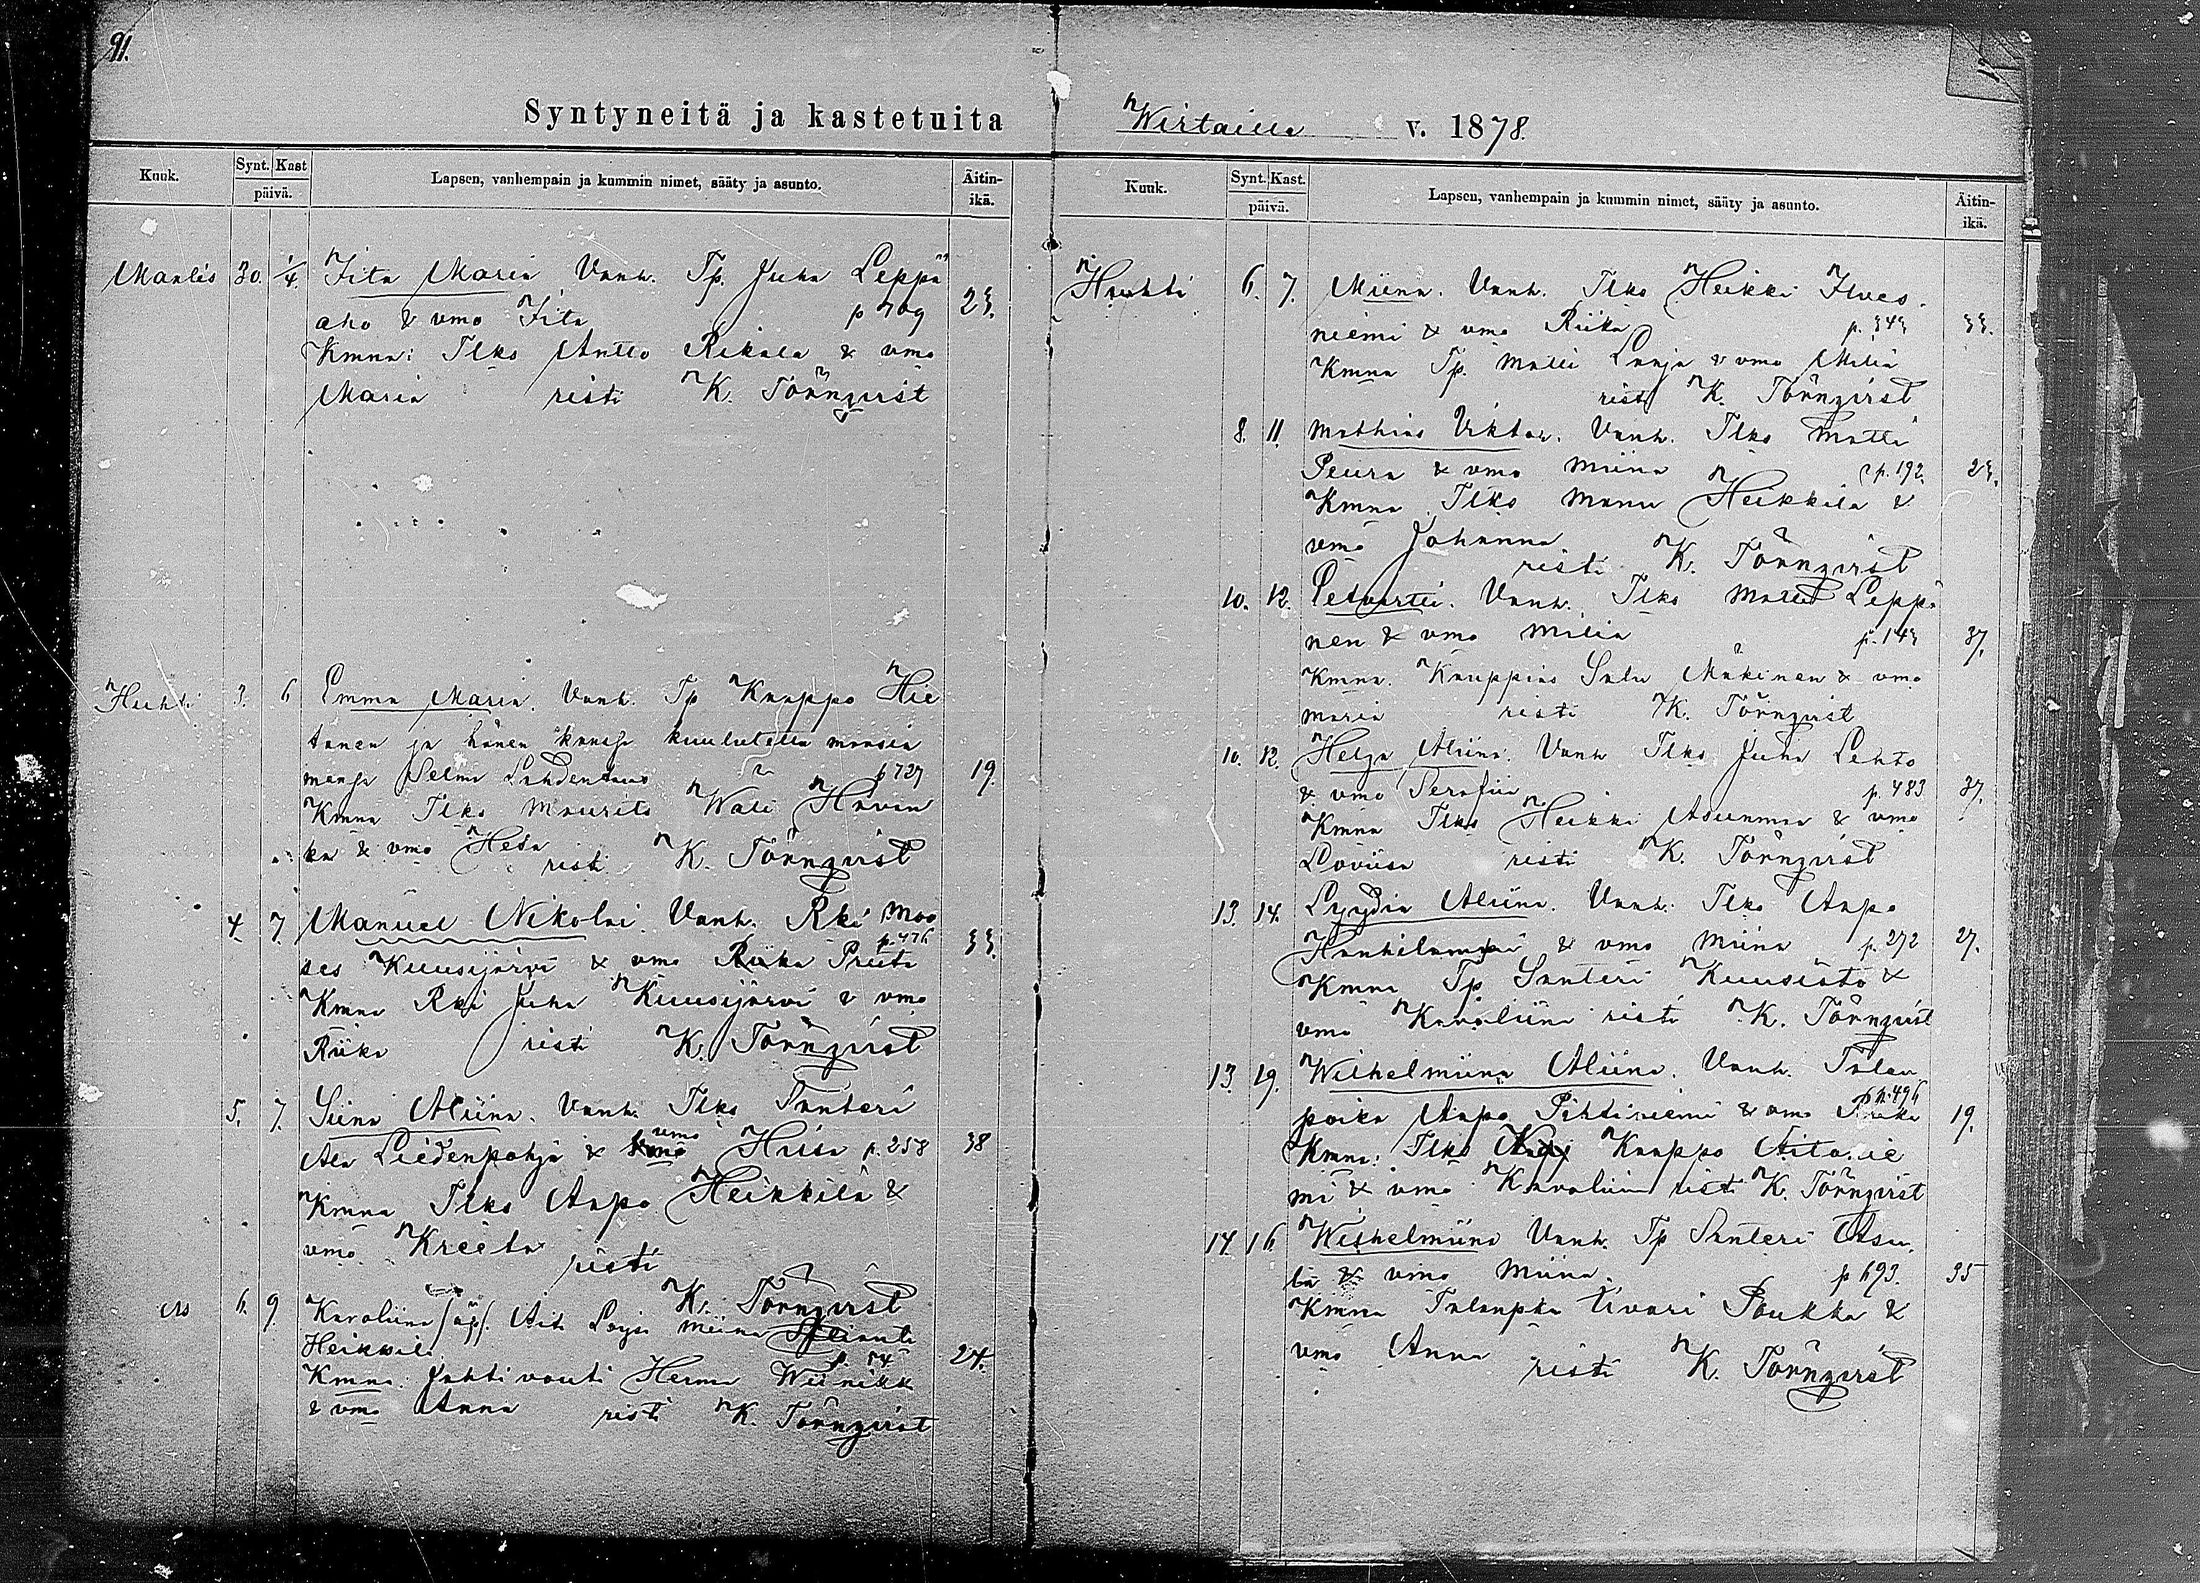 91.
Syntyneitä ja kastetuita Wirtailla v. 1878.
Kuuk. Synt. Kast päivä. Lapsen, vanhempain ja kummin nimet, sääty ja asunto. Äitin-ikä.
Maalis 30. 1/4. Fita Maria Vanh. Tp. Juha Leppä
aho & vmo Fita p 709 23.
Kmna: Tlks Antto Rikala & vmo
Maria risti K. Törnqvist
Huhti 3. 6 Emma Maria. Vanh. Tp Kaappo Hie
tanen ja hänen kanssa kuulutettu morsia
mensa Selma Lahdentaus p 727 19.
Kmna Tlks Maurits Wali Havan
ka & vmo Heta risti K. Törnqvist
4. 7. Manuel Nikolai. Vanh. Rki Moo
ses Kuusijärvi & vmo Riika Priita p. 476 33.
Kmna Rki Juha Kuusijärvi & vmo
Riika risti K. Törnqvist
5. 7. Siina Aliina. Vanh. Tlks Santeri
Ala Liedenpohja & vmo Hiisa p. 258 38
Kmna Tlks Aapo Heikkilä &
vmo Kreeta risti
K. Törnqvist
6. 9. Karoliina (äp). Äiti Loysi Miina
Heikkilä p. 54 24.
Kmna: Jahtivouti Herma Wiinikk
& vmo Anna risti K. Törnqvist
Kuuk. Synt. Kast. päivä. Lapsen, vanhempain ja kummin nimet, sääty ja asunto. Äitin-ikä.
Huhti 6. 7. Miina. Vanh. Tlks Heikki Ilves-
niemi & vmo Riika p. 343 33.
Kmna Tp. Matti Lanja & vmo Milia
risti K. Törnqvist
8. 11. Mathias Viktor. Vanh. Tlks Matti
Peura & vmo Miina p. 192. 23.
Kmna Tlks Manu Heikkila &
vmo Johanna risti K. Törnqvist
10. 12. Petvartti. Vanh. Tlks Matti Leppä
nen & vmo Milia p. 143 37.
Kmna. Kauppias Salu Mäkinen & vmo
Maria risti K. Törnqvist
10. 12. Helga Aliina. Vanh Tlks Juha Lehto
& vmo Serafiia p. 483 37.
Kmna Tlks Heikki Asunmaa & vmo
Loviisa risti K. Törnqvist
13. 14. Lyydia Aliina. Vanh. Tlks Aapo
Hankilampi & vmo Miina p. 272 27.
Kmna Tp Santeri Kuusisto &
vmo Karoliina risti K. Törnqvist
13. 19. Wilhelmiina Aliina. Vanh. Talon
poika Aapo Pihtiniemi & vmo Riika p. 496 19.
Kmna: Tlks Kaappo Aitonie
mi & vmo Karoliin risti K. Törnqvist
14 16. Wilhelmiina Vanh. Tp Santeri Asu
la & vmo Miina. p 693. 35
Kmna Talonpka Iivari Poukka &
vmo Anna risti K. Törnqvist